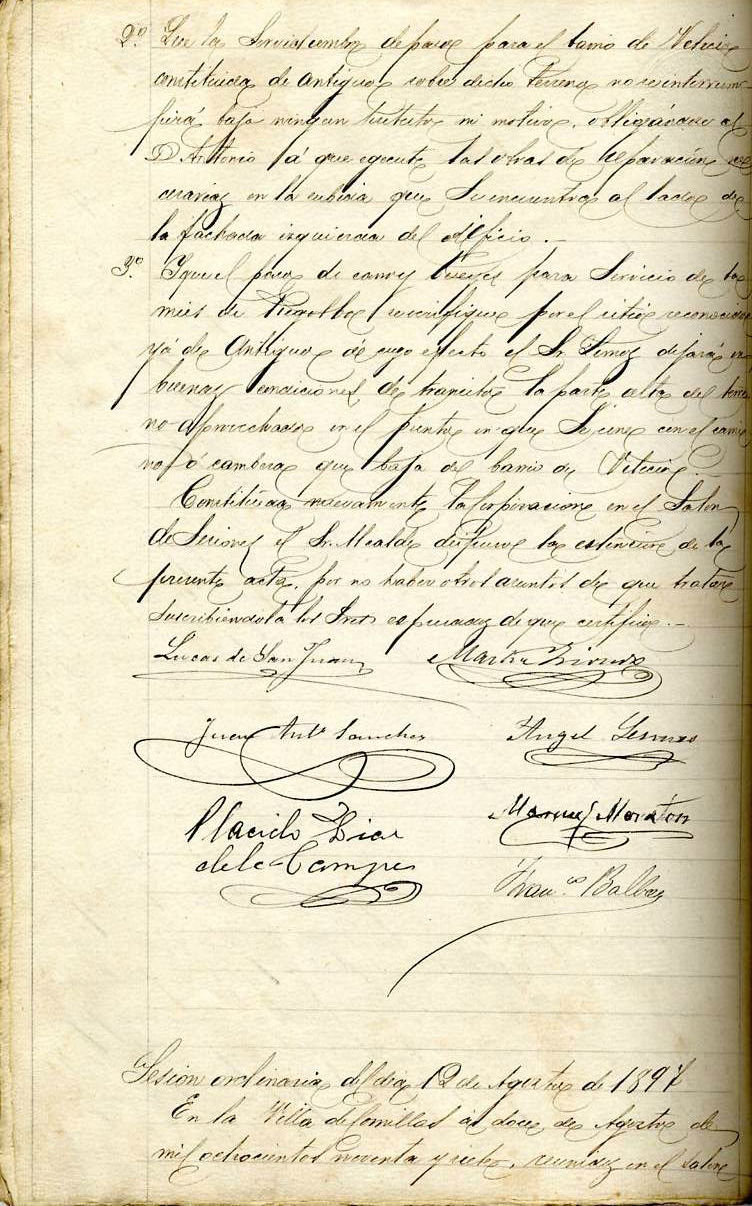 2º Que la Servidumbre de paso para el barrio de Velecio
constituida de antiguo sobre dicho terreno no se interrum-
pirá bajo ningun pretesto ni motivo, obligándose al
D. Antonio á que egecute las obras de reparacion ne
cesarias en la subida que se encuentra al lado de
la fachada izquierda del edificio.-
3º Y que el paso de carro y bueyes para Servicio de la
mies de se verifique por el sitio reconocido
yá de Antiguo á cuyo efecto el Sr. dejará en
buenas condiciones de transito la parte alta del terre
no aprovechado en el punto en que se une con el cami
no ó cambera que baja del barrio de Velecio.
Constituida nuevamente la Corporacion en el Salon
de Sesiones el Sr. Alcalde dispuso la estension de la
presente acta, por no haber otros asuntos de que tratar
suscribiendola los Sres espresados de que certifico.-
Lucas de San Juan
Juan Antº Sanchez Angel
Placido Diaz Manuel Moraton
de la Campa
Franco Balbas
Sesion ordinaria del dia 12 de Agosto de 1897
En la Villa de Comillas á doce de Agosto de
mil ochocientos noventa y siete, reunidos en el salon